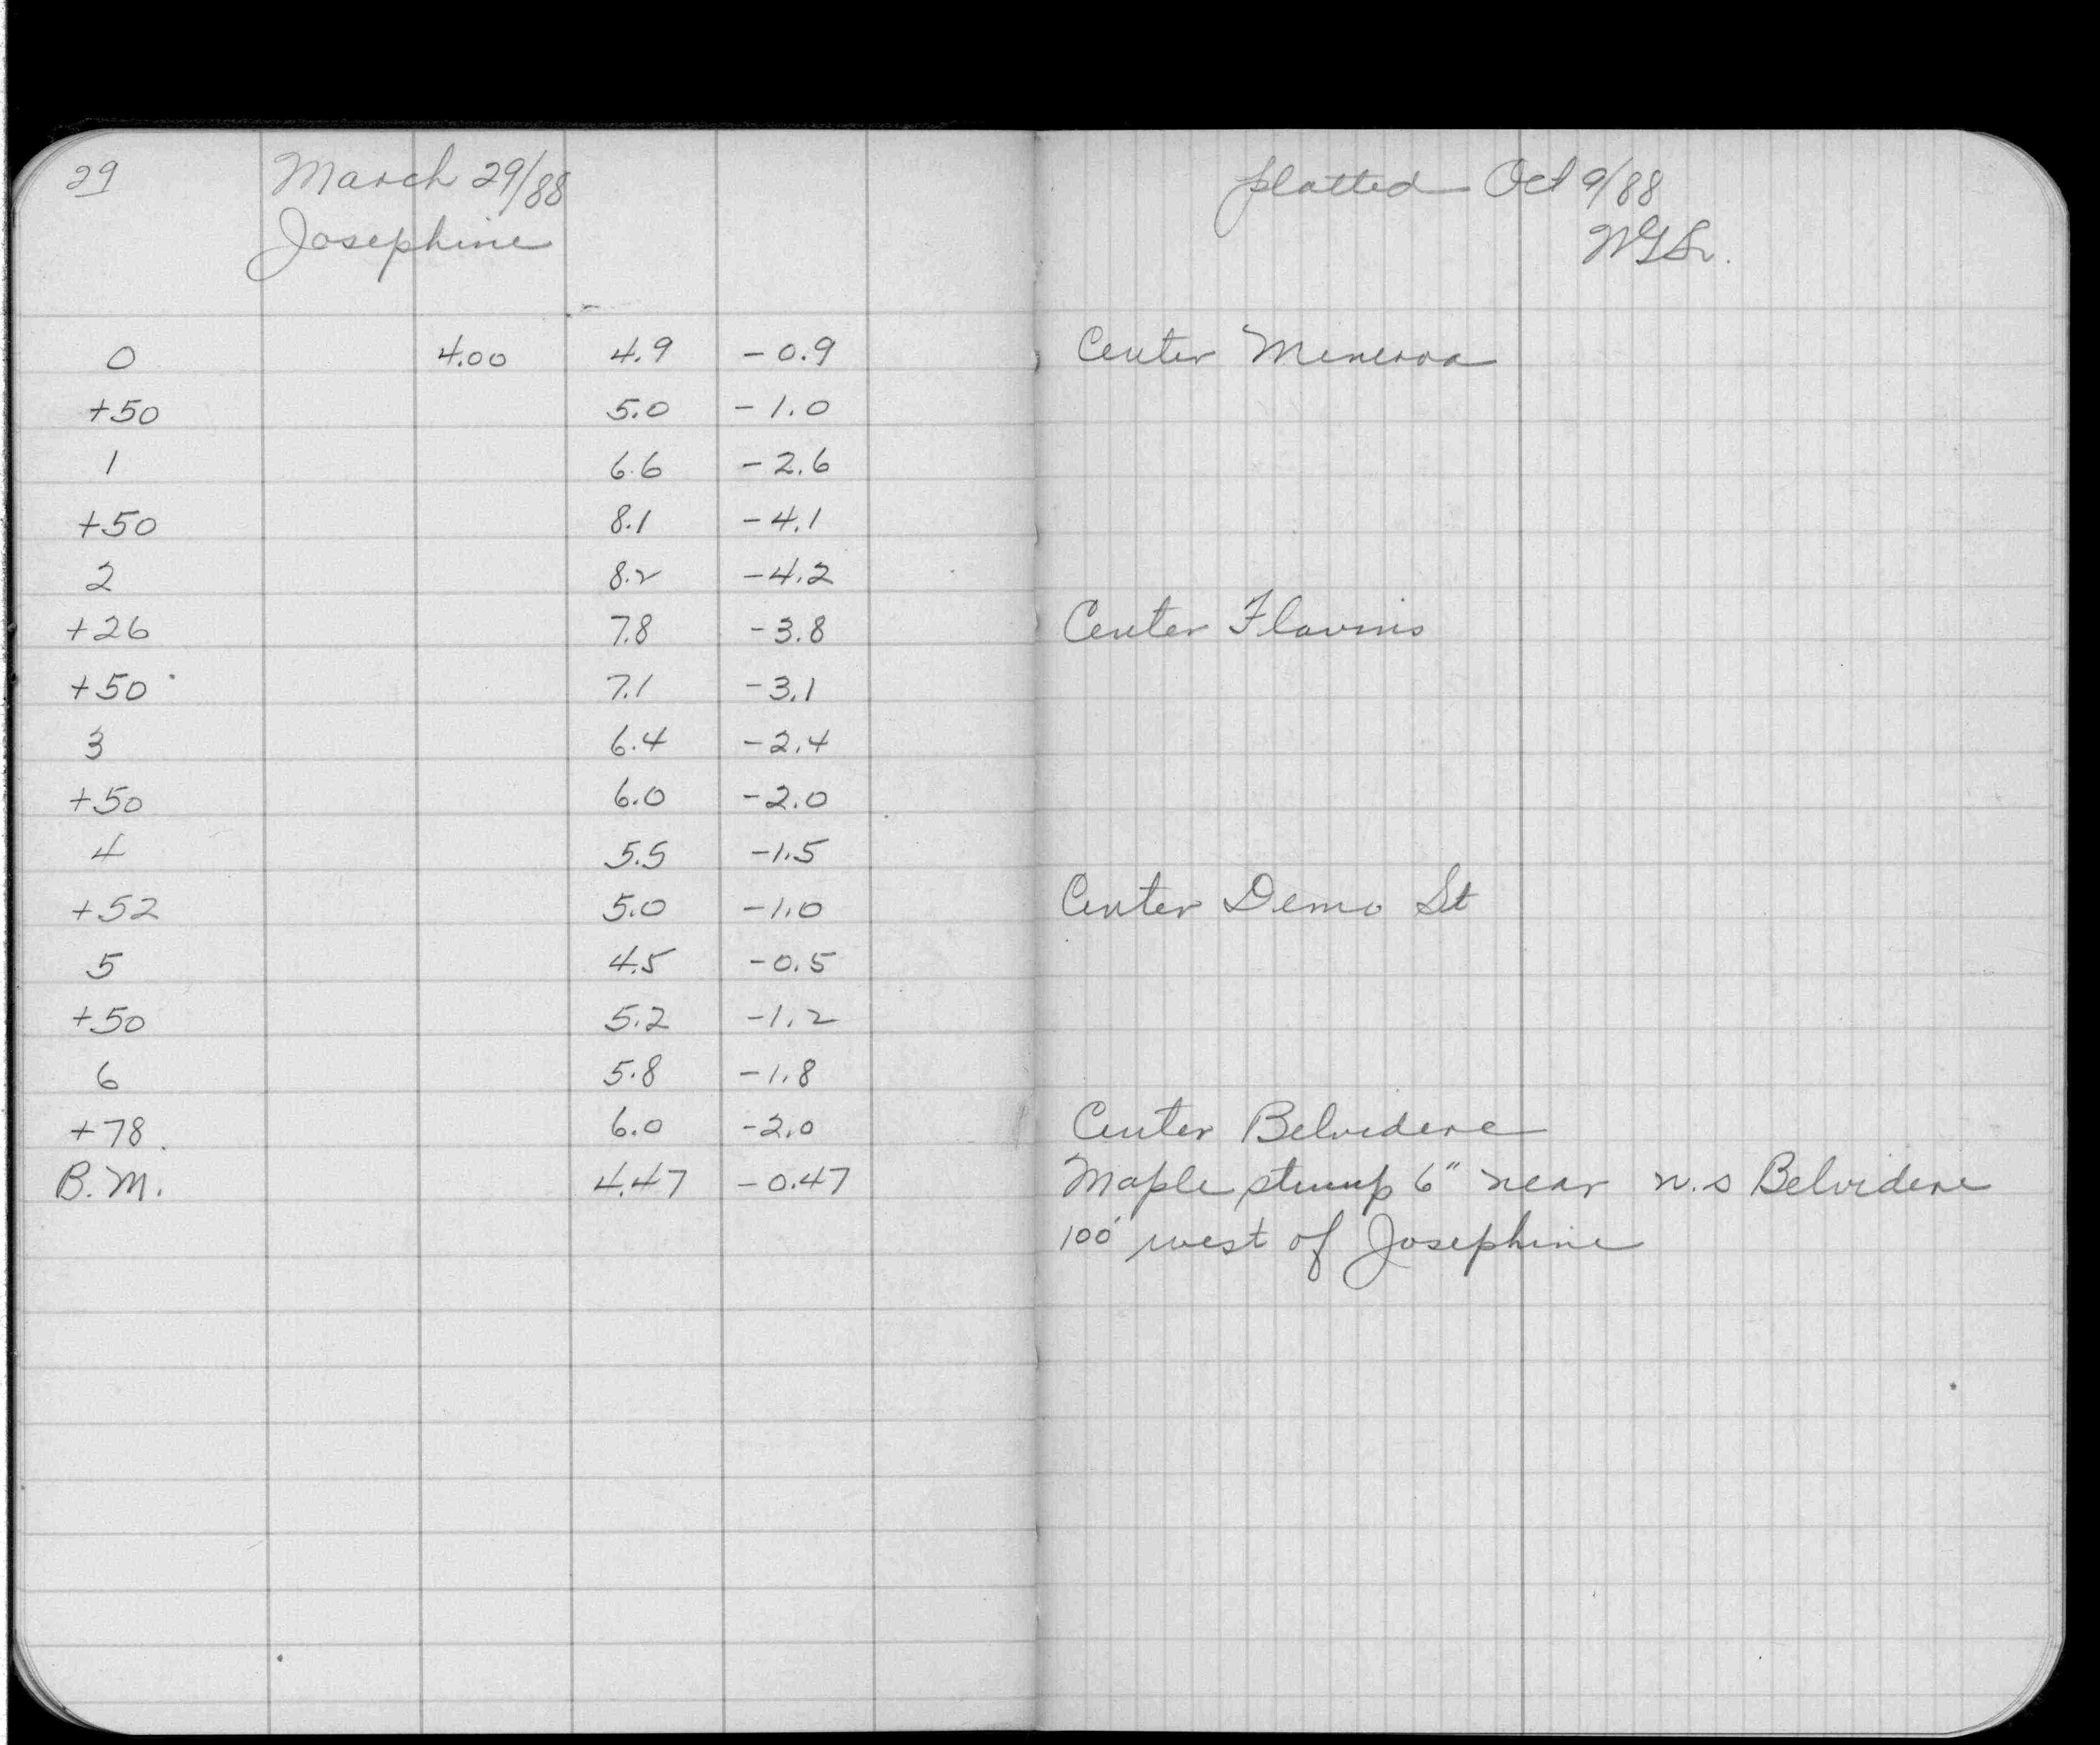 29 March 29/88
Josephine
0 4.00 4.9 -0.9
+50 5.0 -1.0
1 6.6 -2.6
+50 8.1 -4.1
2 8.2 -4.2
+26 7.8 -3.8
+50 7.1 -3.1
3 6.4 -2.4
+50 6.0 -2.0
4 5.5 -1.5
+52 5.0 -1.0
5 4.5 -0.5
+50 5.2 -1.2
6 5.8 -1.8
+78 6.0 -2.0
B.M. 4.47 -0.47
platted Oct 9/88
Center Minerva
Center
Center Demo St
Center Belvidere
Maple stump 6" near n.s Belvidere
100' west of Josephine